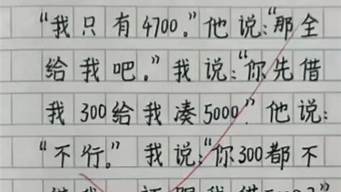 “我只有4700。”他说:“那全
给我吧。”我说:“你先借
我300给我凑5000”他说:
“不行。”我说:“你300都不